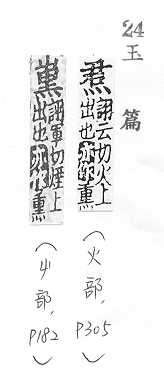 24
玉篇
焄 詡云切火上
出也亦作熏
(火部，P305)
熏 詡軍切煙上
出也亦作熏
(屮部，P182)